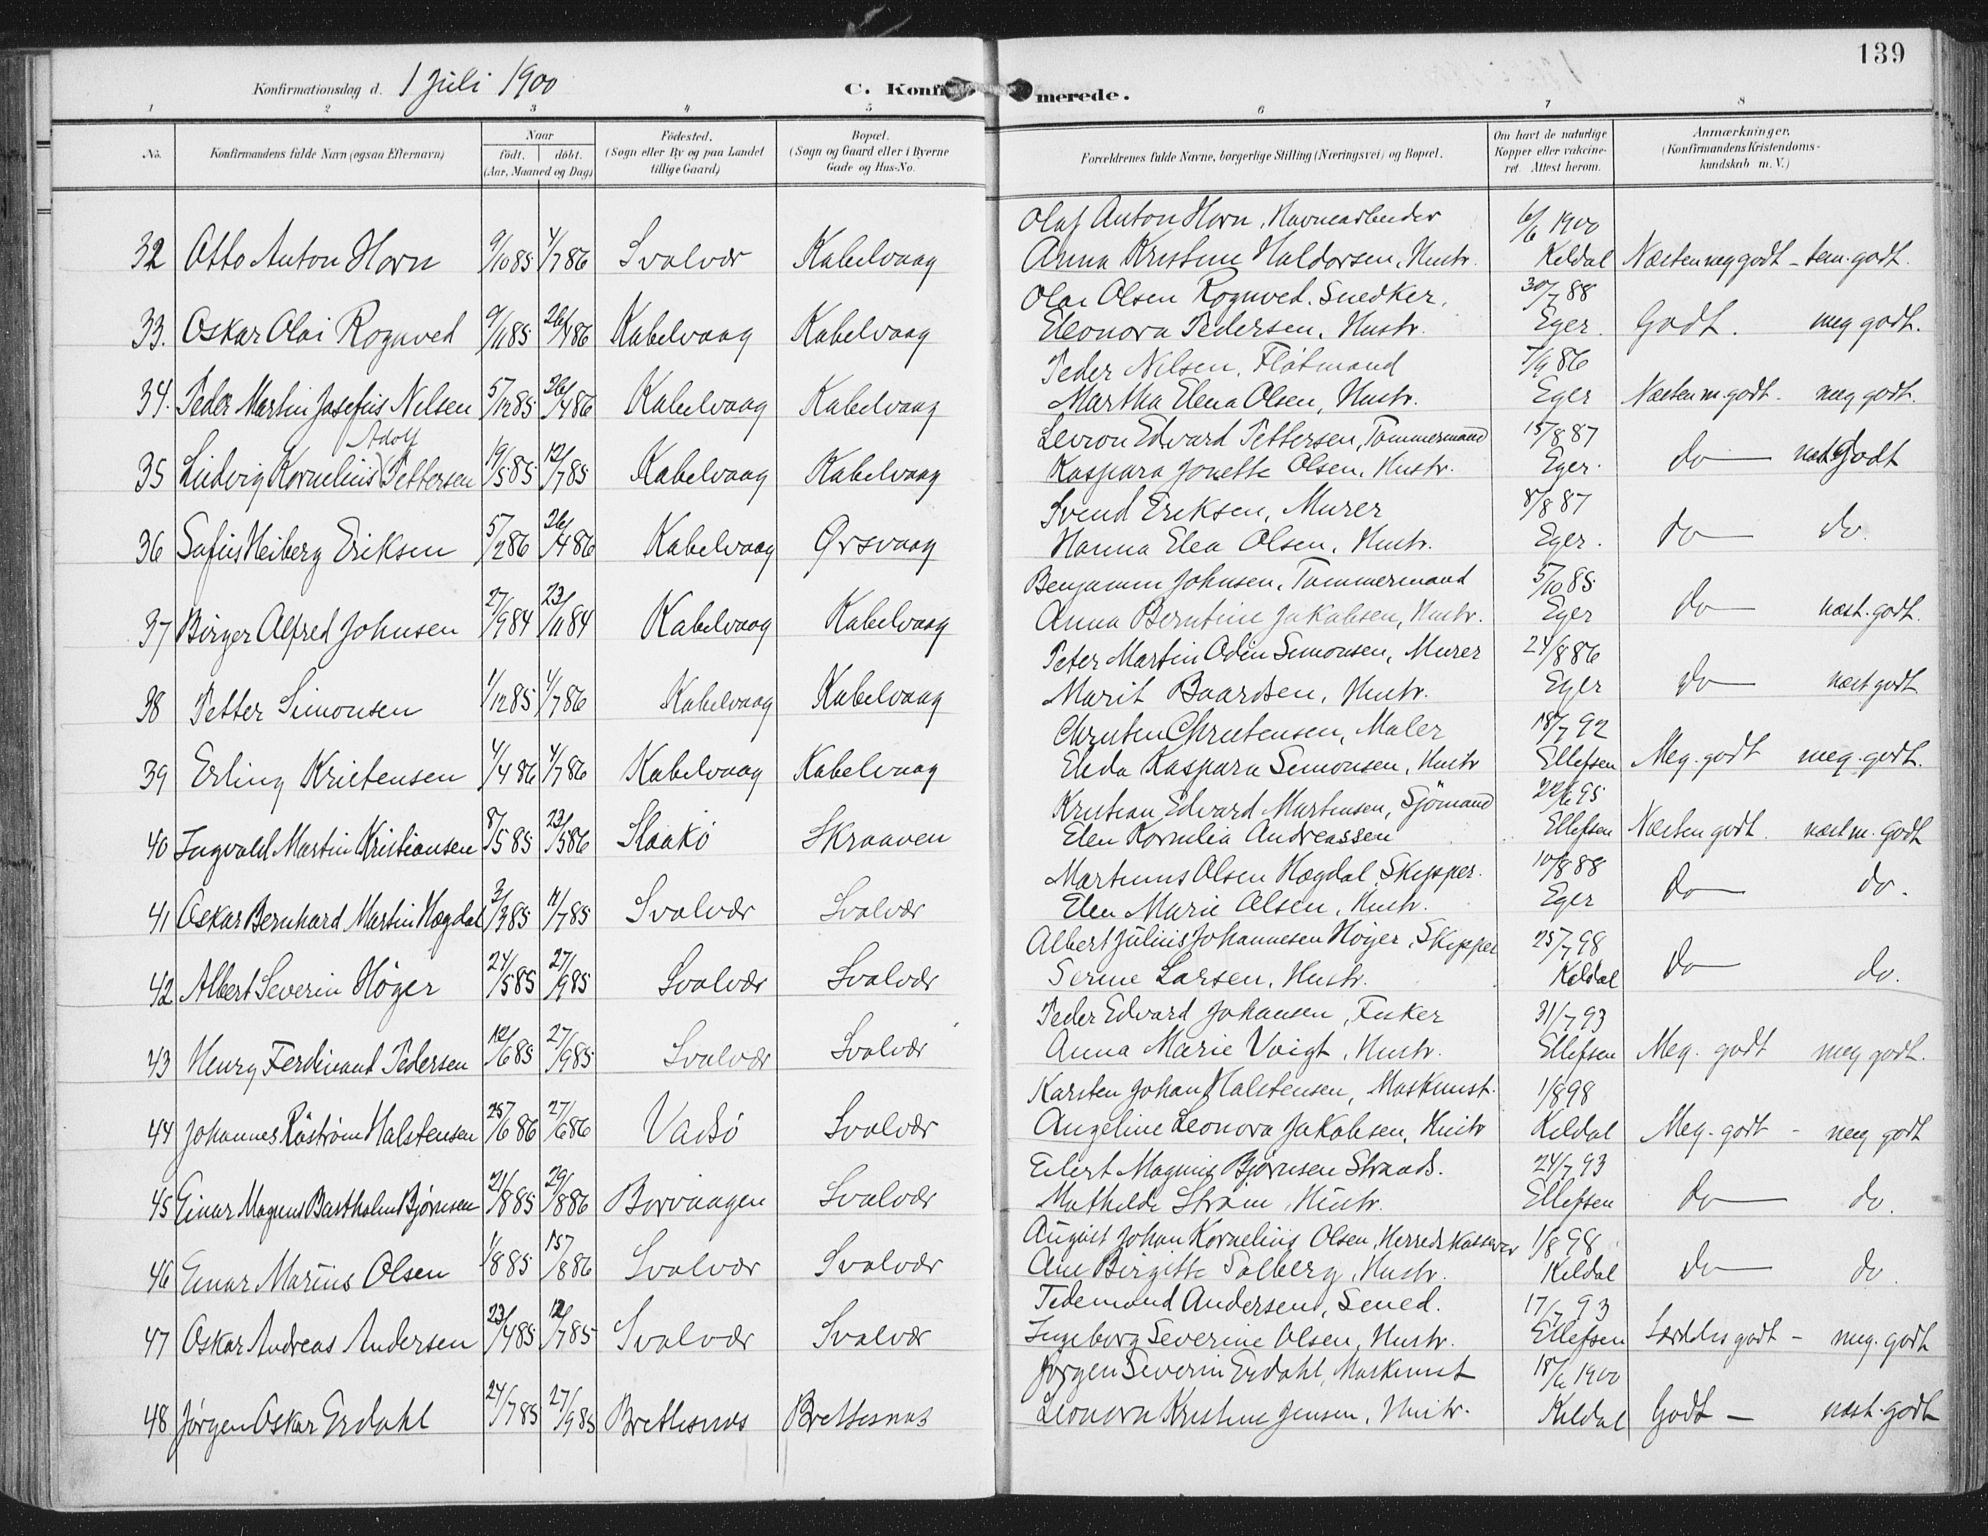 139
Konfirmationsdag d. 1 Juli 1900
C. Konfirmerede.
1 2 3 4 5 6 7 8
No.
Konfirmandens fulde Navn (ogsaa Efternavn)
Naar
födt. döbt.
(Aar, Maaned og Dag)
Födested.
(Sogn eller By og paa Landet
tillige Gaard)
Bopæl.
(Sogn og Gaard eller i Byerne
Gade og Hus-No.
Forældrenes fulde Navne, borgerlige Stilling (Næringsvei) og Bopæl.
Om havt de naturlige
Kopper eller vakcine-
ret. Attest herom.
Anmærkninger.
(Konfirmandens Kristendoms-
kundskab m. V.)
Olaf Anton Horn, Havnearbeider 6/6 1900
32 Otto Anton Horn 9/10 85 4/7 86 Svolvær Kabelvaag Anna Kristine Haldorsen, Hustr. Keldal Næsten meg godt - tem. godt.
Olai Olsen Rognved. Snedker. 30/7 88
33. Oskar Olai Rognved 9/11 85 26/4 86 Kabelvaag Kabelvaag Eleonora Pedersen, Hustr. Eger. Godt. meg godt.
Peder Nilsen, Flötmand 7/9 86
34. Peder Martin Josefus Nilsen 5/12 85 26/4 86 Kabelvaag Kabelvaag Martha Elena Olsen, Hustr. Eger Næsten m. godt. meg godt.
Adolf
Edvard Pettersen, Tømmermand 15/8 87
35 Ludvig Kornelius Pettersen 19/5 85 12/7 85 Kabelvaag Kabelvaag Kaspara Jonette Olsen, Hustr. Eger. do Godt
Svend Eriksen, Murer 8/8 87
36 Sofus Heiberg Eriksen 5/2 86 26/4 86 Kabelvaag Ørsvaag Hanna Elea Olsen, Hustr. Eger. do do.
Benjamin Johnsen, Tømmermand 5/10 85
37 Birger Alfred Johnsen 27/9 84 23/11 84 Kabelvaag Kabelvaag Anna Berntine Jakobsen, Hustr. Eger do næst. godt.
Peter Martin Odin Simonsen, Murer 24/8 86
38 Petter Simonsen 1/12 85 4/7 86 Kabelvaag Kabelvaag Marit Baardsen, Hustr. Eger do næst godt
Christen Christensen, Maler 18/7 92
39 Erling Kristensen 4/4 86 4/7 86 Kabelvaag Kabelvaag Elida Kaspara Simonsen, Hustr Ellefsen Meg. godt meg. godt.
Kristian Edvard Martinsen, Sjömand 22/6 95
40 Ingvald Martin Kristiansen 8/5 85 23/5 86 Skraaven Elen Kornelia Andreassen Ellefsen Næsten godt. næst m. godt
Martinus Olsen Hægdal, Skipper. 10/8 88
41 Oskar Bernhard Martin Hægdal 3/3 85 /7 85 Svolvær Svolvær Elen Marie Olsen, Hustr. Eger do do.
Albert Julius Johannesen Höyer, Skipper 25/7 98
42 Albert Severin Höyer 24/5 85 27/9 85 Svolvær Svolvær Serine Larsen, Hustr. Keldal do do.
Peder Edvard Johansen, Fisker 31/7 93
43 Henry Ferdinant Pedersen 12/6 85 27/9 85 Svolvær Svolvær Anna Marie Voigt, Hustr. Ellefsen Meg. godt meg godt.
Karsten Johan Halstensen, Maskinist. 1/8 98
44 Johannes Råström Halstensen 25/6 86 27/6 86 Vadsö Svolvær Angeline Leonora Jakobsen, Hustr Keldal Meg. godt - meg godt
Eilert Magnus Bjørnsen Strands. 24/7 93
45 Einar Magnus Bartholm Bjørnsen 21/8 85 29/8 86 Borvaagen Svolvær Mathilde Strøm, Hustr. Ellefsen do do.
August Johan Kornelius Olsen, Herredskasserer 1/8 98
46 Einar Marius Olsen 1/8 85 15/8 86 Svolvær Svolvær Ane Birgitte Solberg, Hustr. Keldal do do.
Tidemand Andersen, Smed. 17/7 93
47 Oskar Andreas Andersen 23/4 85 12/7 85 Svolvær Svolvær Ingeborg Severine Olsen, Hustr. Ellefsen Særdeles godt - meg. godt
Jørgen Severin Erdahl, Maskinist 18/6 1900
48 Jørgen Oskar Erdahl 24/7 85 27/9 85 Brettesnæs Brettesnæs Leonora Kristine Jensen, Hustr. Keldal Godt - næst. godt